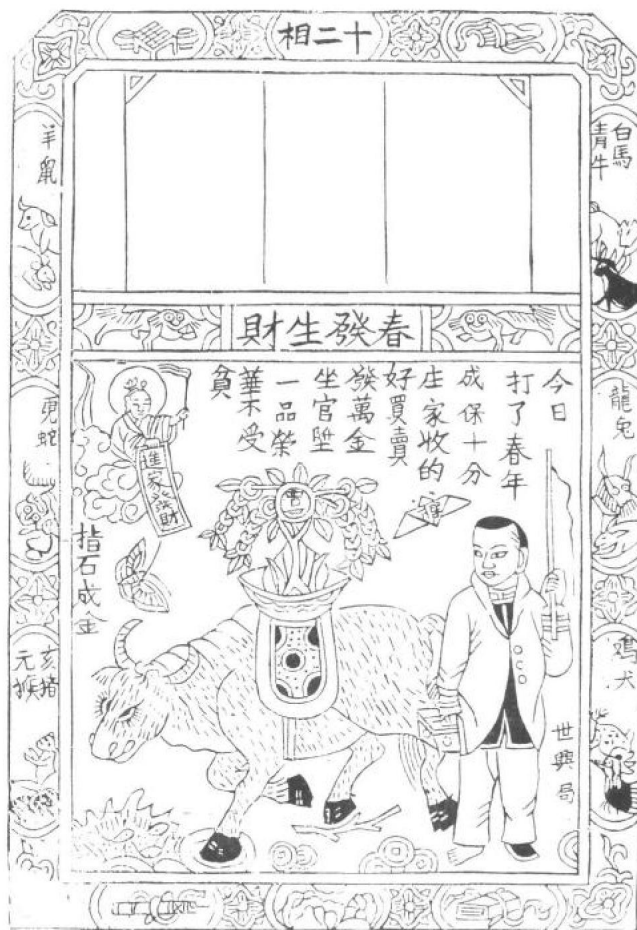 十二相
白馬
青牛
羊鼠
龍兔
虎蛇
鷄犬
亥猪
元猴
春發生財
今日
打了春年
成保十分
庄家收的
好買賣
發萬金
坐官陞
一品榮
華不受
貧
進家發財
指石成金
世興局